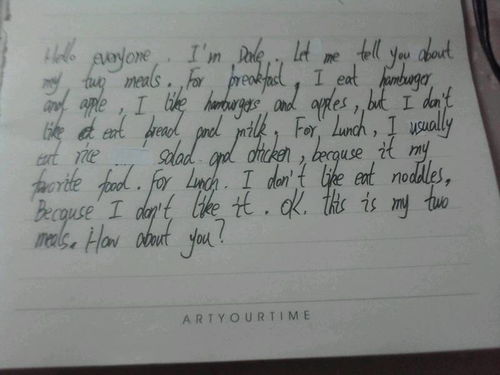 Hello everyone. I'm Dale. Let me tell you about
my two meals. For breakfast, I eat hamburger
and apple, I like hamburgers and apples, but I don't
like eat bread and milk. For Lunch, I usually
eat rice salad and chicken, because it my
favorite food. For Lunch. I don't like eat noddles.
Because I don't like it. OK. this is my two
meals. How about you?
ARTYOURTIME